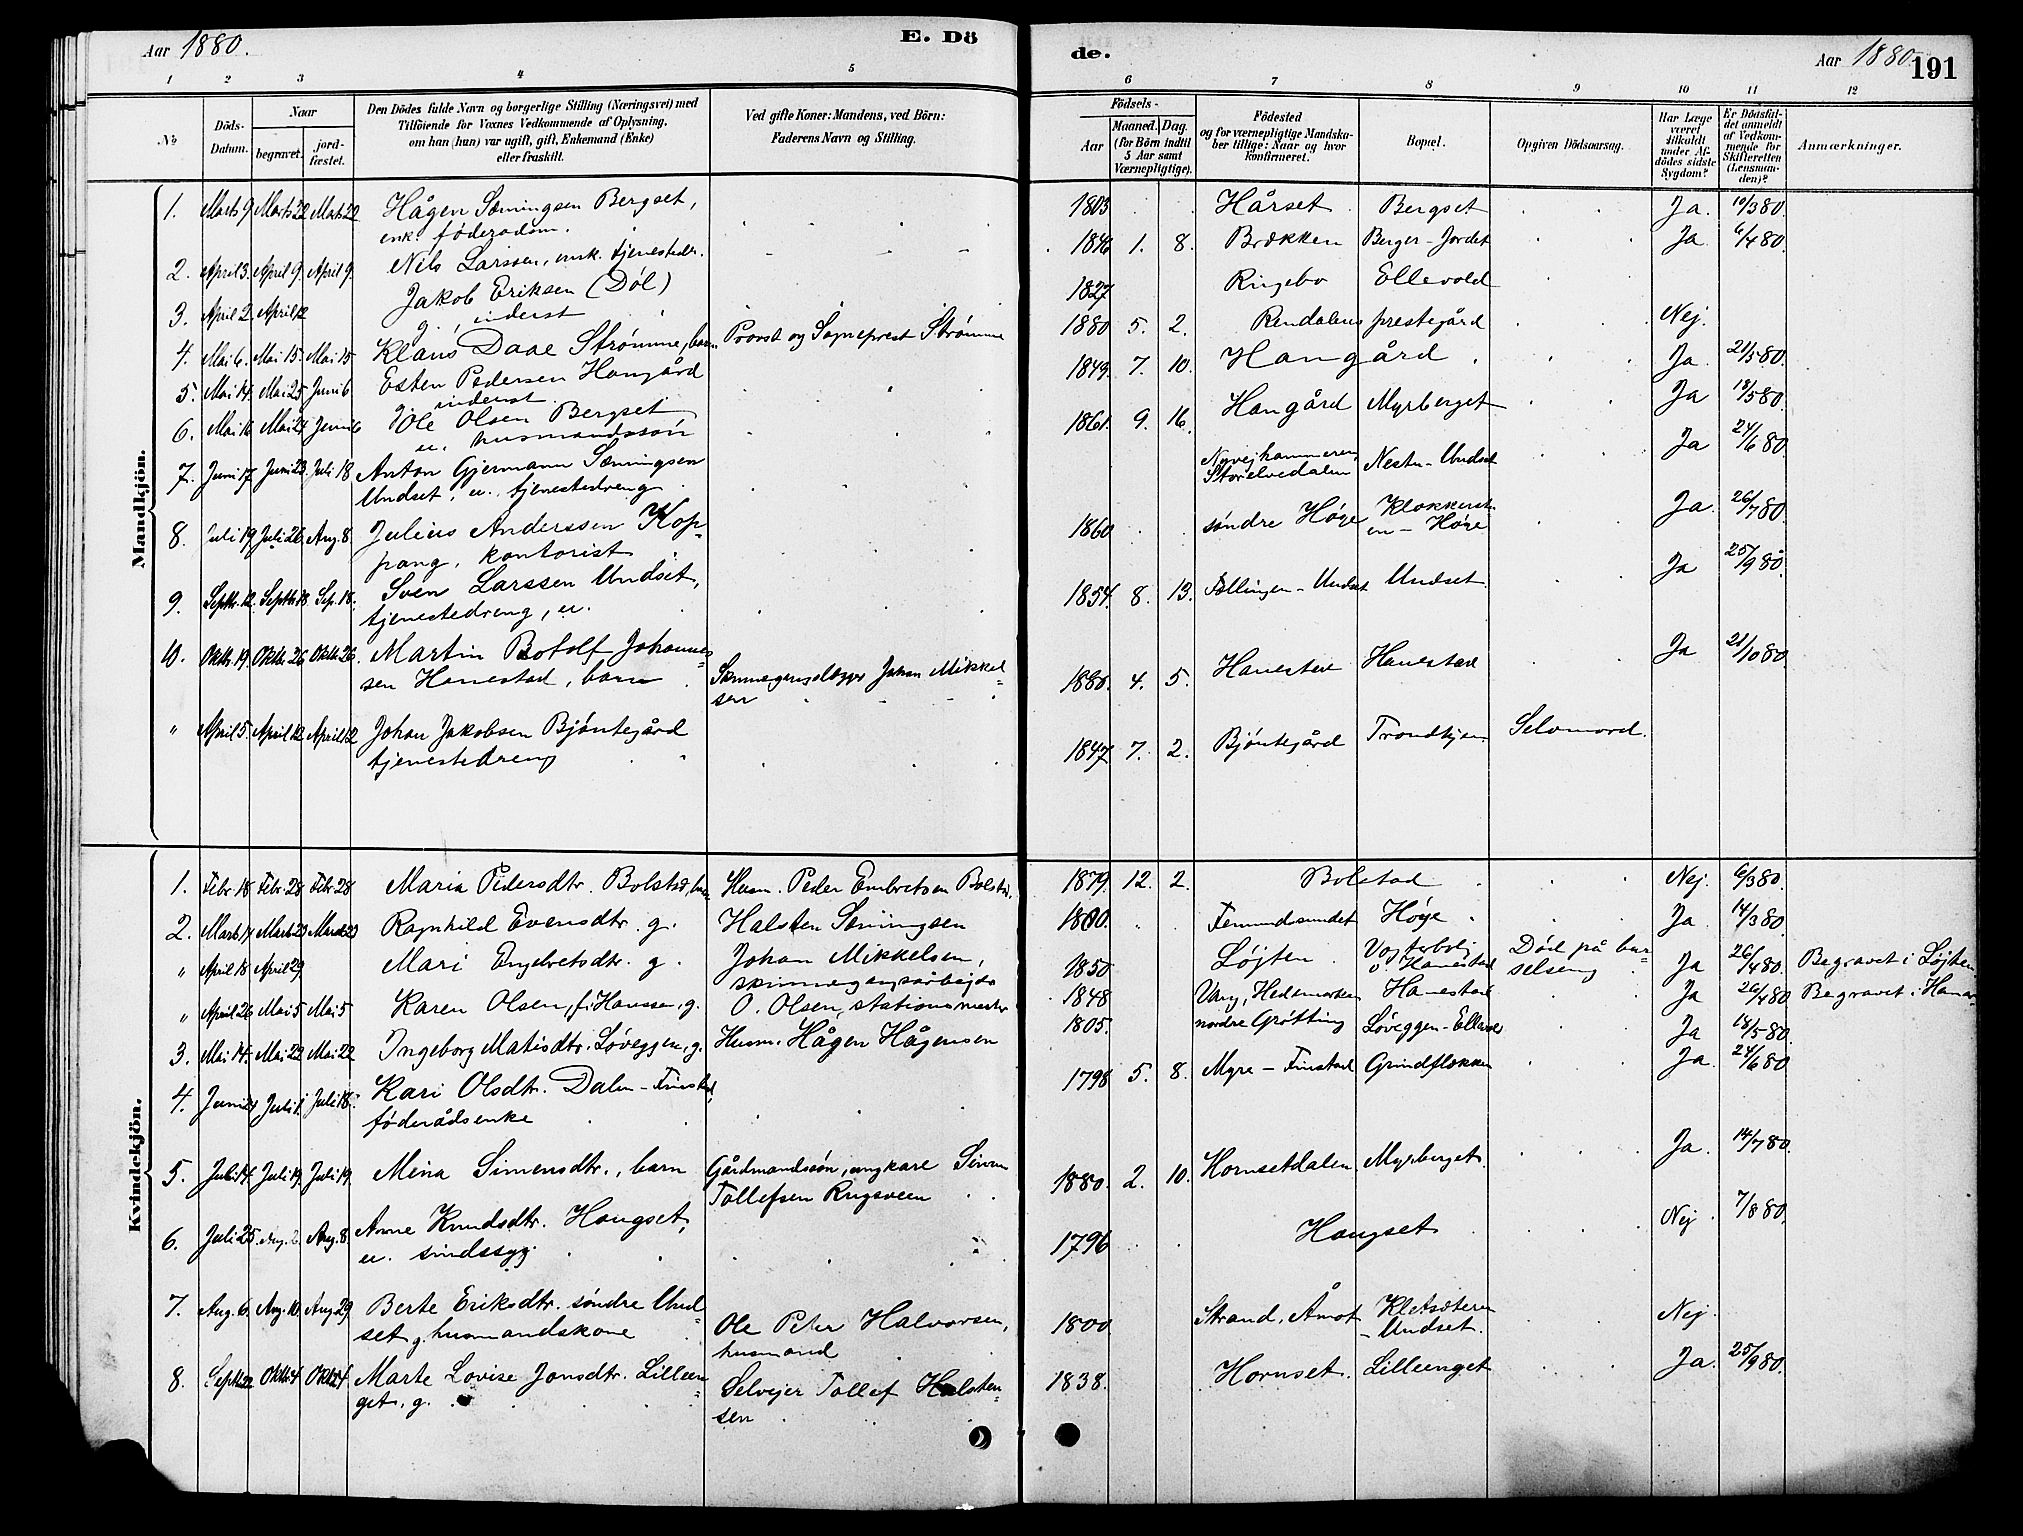 Aar 1880.
E. Dö
de.
Aar 1880.
191
1 2 3 4 5 6 7 8 9 10 11 12
No
Döds-Datum.
Naar
begravet.
jord-fæstet.
Den Dödes fulde Navn og borgerlige Stilling (Næringsvei) med
Tilföiende for Voxnes Vedkommende af Oplysning,
om han (hun) var ugift, gift, Enkemand (Enke)
eller fraskilt.
Ved gifte Koner: Mandens, ved Börn:
Faderens Navn og Stilling.
Födsels-
Aar
Maaned. Dag.
(for Börn indtil
5 Aar samt
Værnepligtige).
Födested
og for værnepligtige Mandska-
ber tillige: Naar og hvor
konfirmeret.
Bopæl.
Opgiven Dödsaarsag.
Har Læge
været
tilkaldt
under Af-
dödes sidste
Sygdom?
Er Dödsfal-
det anmeldt
af Vedkom-
mende for
Skifteretten
(Lensman-
den)?
Anmærkninger.
Mandkjön.
1. Marts 9. Marts 22 Marts 22 Hågen Sæmingsen Bergset, 1803 Hårset Bergset Ja. 10/3 80.
enk. föderådsm.
2. April 3. April 9. April 9. Nils Larssen, enk. tjenestedr. 1846 1. 8. Brækken Berger-Jordet Ja 6/4 80.
3. April 2. April 12 Jakob Eriksen (Döl) 1827 Ringebo Ellevold
g. inderst
4. Mai 6. Mai 15. Mai 15 Klaus Daae Strömme, barn Provst og Sogneprest Strömme 1880 5. 2. Rendalens prestegård Nej.
5. Mai 14. Mai 25 Juni 6 Esten Pedersen Hangård 1849. 7. 10. Hangård Ja 21/5 80.
g. inderst
6. Mai 16 Mai 24 Juni 6 Ole Olsen Bergset 1861. 9. 16. Hangård Myrberget Ja 18/5 80.
u. husmandssön
7. Juni 17 Juni 23 Juli 18 Anton Gjermann Sæmingsen Storelvedalen Nestu-Undset Ja 24/6 80
Undset, u. tjenestedreng
8. Juli 19 Juli 26 Aug. 8. Julius Anderssen Kop- 1860 söndre Höye Klokkerst- Ja. 26/7 80
pang, kontorist en-Höye
9. Septbr. 12. Septbr 18 Sep. 18. Sven Larssen Undset, 1854. 8. 13. Fællingen-Undset Undset Ja 25/9 80.
tjenestedreng, u.
10. Oktbr. 19. Oktbr. 26 Oktbr. 26. Martin Botolf Johannes- 1880. 4. 5. Hanestad Hanestad Ja 21/10 80
sen Hanestad, barn Johan Mikkel-
sen
" April 5. April 12 April 12 Johan Jakobsen Bjöntegård 1847 7. 2. Bjöntegård Trondhjem Selvmord.
tjenestedreng
Kvindekjön.
1. Febr. 18 Febr. 28 Febr. 28 Maria Pedersdtr. Bolstad, barn Husm. Peder Embretsen Bolstad. 1879. 12. 2. Bolstad Nej. 6/3 80.
2. Marts 14 Marts 23 Marts 23 Ragnhild Evensdtr. g. Halsten Sæmingsen 1800. Femundsundet Höye Ja. 14/3 80.
" April 18 April 29 Mari Engebretsdtr. g. Johan Mikkelsen, 1850 Löjten Vogterbolig Död på bar- Ja 26/4 80. Begravet i Löjten
v. Hanestad selseng
" April 26 Mai 5 Mai 5 Karen Olsen, f. Hanssen, g. O. Olsen, stationsmester 1848 Vang, Hedemarken Hanestad Ja 26/4 80 Begravet i Hamar
3. Mai 14. Mai 22 Mai 22 Ingeborg Matisdtr. Löveggen, g. Husm. Hågen Hågensen 1805. nordre Grötting Löveggen-Ellevol Ja 18/5 80.
4. Juni 21 Juli 1 Juli 18 Kari Olsdtr. Dalen-Finstad, 1798 5. 8. Myre-Finstad Grindflækken Ja. 24/6 80
föderådsenke
5. Juli 14. Juli 19. Juli 19. Mina Simensdtr., barn Gårdmandssön, ungkarl Simen 1880. 2. 10. Hornsetdalen Myrberget Ja. 14/7 80.
Tollefsen Rugsveen
6. Juli 25. Aug. 2. Aug. 8. Anne Knudsdtr. Haugset, 1796 Haugset Nej 7/8 80.
u. sindssyg
7. Aug. 6. Aug. 10. Aug 29 Berte Eriksdtr. söndre Und- Ole Peter Halvorsen, 1800 Strand, Åmot Kletsæteren Nej.
set g. husmandskone husmand -Undset.
8. Septbr. 22 Oktbr. 4 Oktbr. 4 Marte Lovise Jonsdtr. Lilleen- Selvejer Tollef Halsten- 1838. Hornset Lilleenget Ja. 25/9 80.
get, g. sen